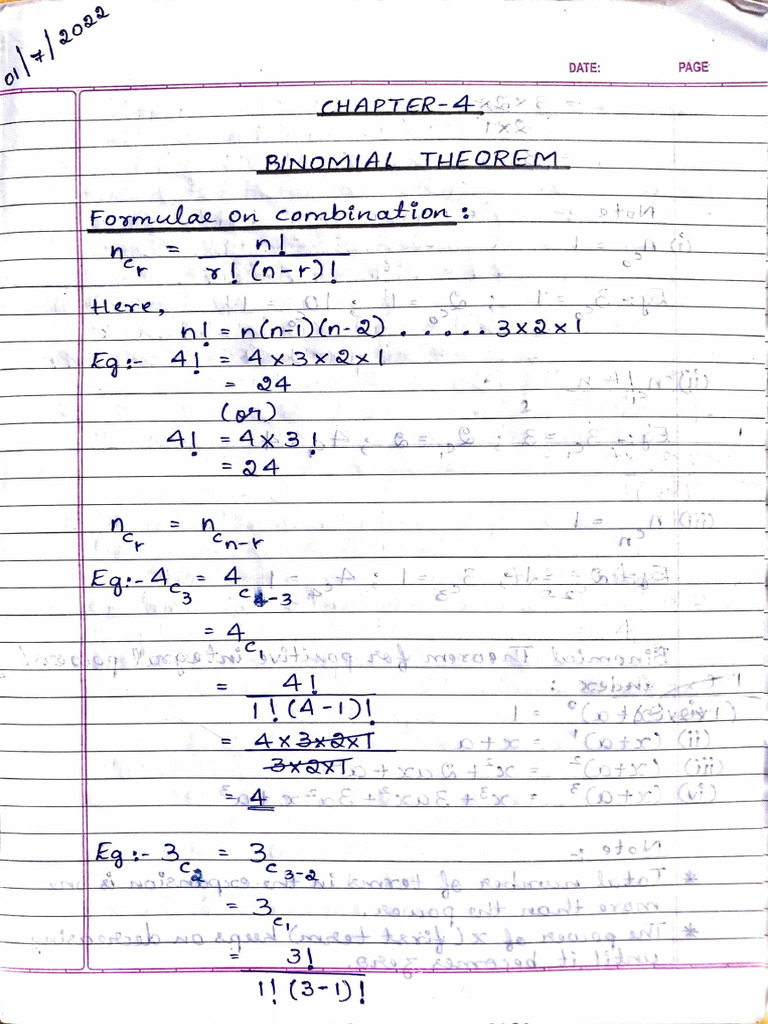 01/7/2022
DATE: PAGE
CHAPTER-4
BINOMIAL THEOREM
Formulae on combination :
n_c_r = n! / r! (n-r)!
Here,
n! = n(n-1)(n-2) . . . . . . 3×2×1
Eg:- 4! = 4×3×2×1
= 24
(or)
4! = 4×3!
= 24
n_c_r = n_c_n-r
Eg:- 4_c_3 = 4_c_4-3
= 4_c_1
= 4! / 1! (4-1)!
= 4×3×2×1 / 3×2×1
= 4
Eg:- 3_c_2 = 3_c_3-2
= 3_c_1
= 3! / 1! (3-1)!